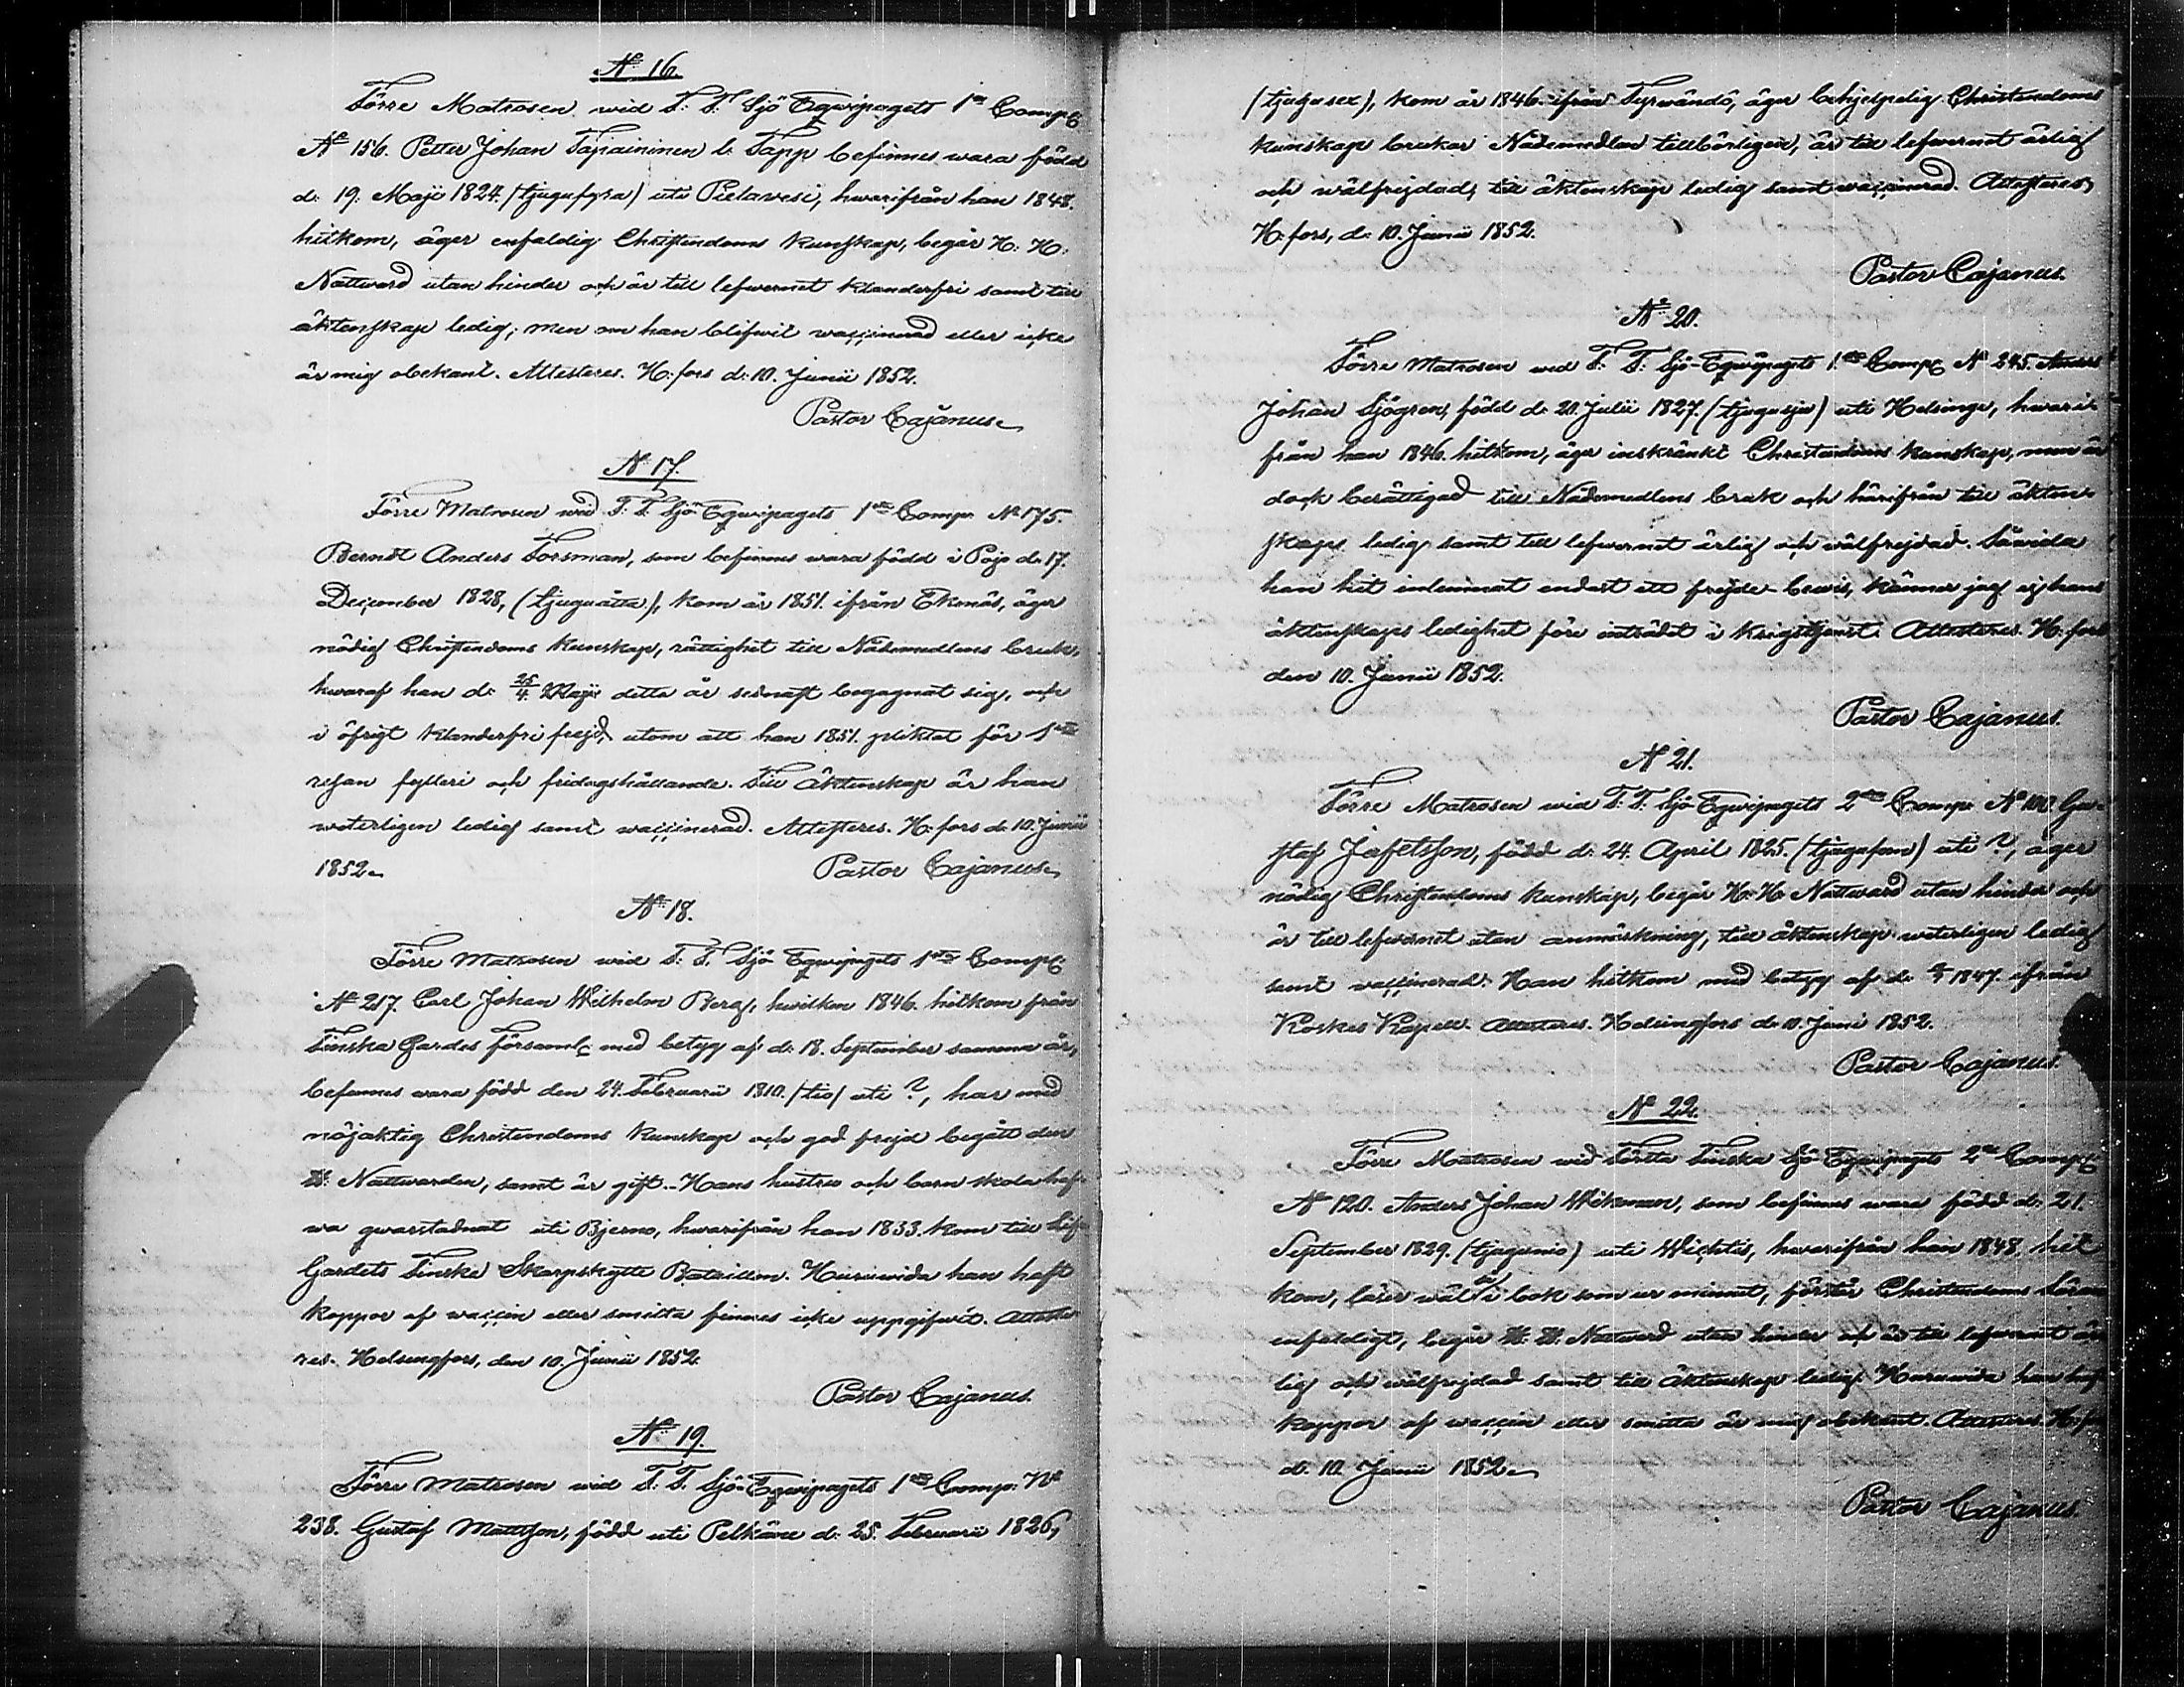 No 16.
Förre Matrosen wid F: F. Sjö Eqwipagets 1sta Comp:
No 156. Petter Johan Tapaininen l. Tapp befinnes wara född
d: 19. Maji 1824. (tjugufyra) uti Pielavesi, hwarifrån han 1848.
hitkom, äger enfaldig Christendoms kunskap, begår H: H:
Nattward utan hinder och är till lefwernet klanderfri samt till
äktenskap ledig; men om han blifwit waccinerad eller icke
är mig obekant. Attesteres. H:fors d: 10. Junii 1852.
Pastor Cajanus
No 17.
Förre Matrosen wid F. F. Sjö Eqwipagets 1sta Comp: No 175.
Berndt Anders Forsman, som befinnes wara född i Pojo d: 17.
December 1828, (tjuguåtta), kom år 1851. ifrån Ekenäs, äger
nödig Christendoms kunskap, rättighet till Nådemedlens bruk,
hwaraf han d: 25/4. Maji detta år sednast begagnat sig, och
i öfrigt klanderfri frejd, utom att han 1851. pliktat för 1sta
resan fylleri och fridagshållande. Till äktenskap är han
weterligen ledig samt waccinerad. Attesteres. H:fors d: 10. Junii
1852.
Pastor Cajanus
No 18.
Förre Matrosen wid F: F. Sjö Eqwipagets 1sta Comp:
No 217. Carl Johan Wilhelm Berg, hwilken 1846. hitkom från
Finska Gardes församl: med betyg af d: 18. September samma år,
befinnes wara född den 24. Februarii 1810. (tio) uti ?, har med
nöjaktig Christendoms kunskap och god frejd begått den
H: Nattwarden, samt är gift. Hans hustru och barn skola haf-
wa qwarstadnat uti Bjerno, hwarifrån han 1833. kom till Lif-
Gardets Finska Skarpskytte Bataillon. Huruwida han haft
koppor af waccin eller smitta finnes icke uppgifwit. Atteste-
res. Helsingfors, den 10. Junii 1852.
Pastor Cajanus.
No 19.
Förre Matrosen wid F: F. Sjö-Eqwipagets 1sta Comp: No
238. Gustaf Mattsson, född uti Pelkäne d: 25. Februarii 1826,
(tjugusex), kom år 1846. ifrån Tyrwändö, äger behjelpelig Christendoms
kunskap brukar Nådemedlen tillbörligen, är till lefwernet ärlig
och wälfrejdad, till äktenskap ledig samt waccinerad. Attesteres
H:fors, d: 10. Junii 1852.
Pastor Cajanus.
No 20.
Förre Matrosen wid F: F: Sjö-Eqwipagets 1sta Comp: No 245. Anders
Johan Sjögren, född d: 20. Julii 1827. (tjugusju) uti Helsinge, hwari-
från han 1846. hitkom, äger inskränkt Christendoms kunskap, men är
dock berättigad till Nådemedlens bruk och härifrån till äkten-
skap ledig samt till lefwernet ärlig och wälfrejdad. Såwida
han hit inlemnat endast ett frejde-bewis, känner jag ej hans
äktenskaps ledighet före inträdet i krigstjenst. Attesteres. H:fors
den 10. Junii 1852.
Pastor Cajanus.
No 21.
Förre Matrosen wid F: F: Sjö Eqwipagets 2dra Comp: No 100 Gu-
staf Jafetsson, född d: 24. April 1825. (tjugufem) uti ?, äger
nödig Christendoms kunskap, begår H: H. Nattward utan hinder och
är till lefwernet utan anmärkning, till äktenskap weterligen ledig
samt waccinerad. Han hitkom med betyg af d: 1847. ifrån
Koskis Kapell. Attesteres. Helsingfors d: 10. Junii 1852.
Pastor Cajanus.
No 22.
Förre Matrosen wid Första Finska Sjö Eqwipagets 2dra Comp:
No 120. Anders Johan Wikman, som befinnes wara född d: 21.
September 1829. (tjugunio) uti Wichtis, hwarifrån han 1848. hit
kom, läser wäl så i bok som ur minnet, förstår Christendoms läran
enfaldigt, begår H: H. Nattward utan hinder och är till lefwernet är-
lig och wälfrejdad samt till äktenskap ledig. Huruwida han haft
koppor af waccin eller smitta är mig obekant. Attesteres. H:fors
d: 10. Junii 1852.
Pastor Cajanus.